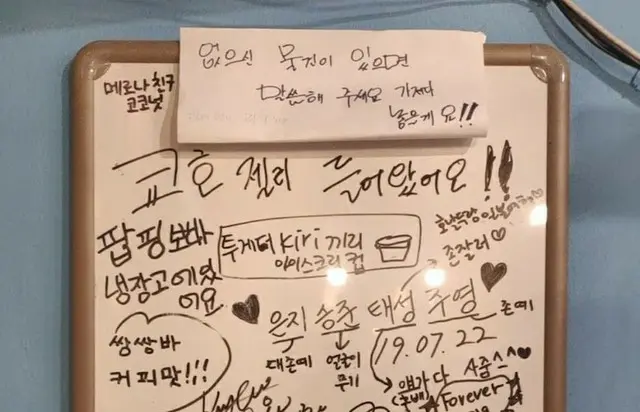 없으신 물건이 있으면
말씀해 주세요 가져다
놓을게요!!
메로나친구
코코넛
쿄호 젤리 들어왔어요!!
팝핑보바
냉장고에있
어요
투게더 kiri 끼리
아이스크림 컵
존잘러♡
은지 승준 태성 주영
존예
대존예
얼굴이
무기
19.07.22
쌍쌍바
커피맛!!!
얘가 다
사줌^^♥
Forever